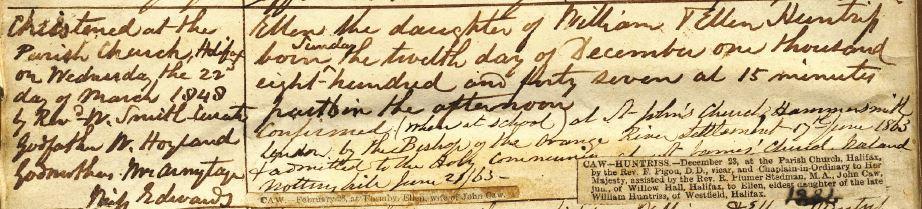 Christened at the
Parish Church, Halifax
on Wednesday the 22d
day of March 1848
by Revd. W. Smith Curate
Godfather W. Hoyland
Godmothers Mrs Armytage
Miss Edwards
Ellen the daughter of William & Ellen Huntriss
Sunday
born, the twelfth day of December one thousand
eight hundred and forty seven at 15 minutes
past in the afternoon
confirmed (when at school) at St John's Church, Hammersmith
London by the Bishop of the Orange River Settlement 17th June 1865
& admitted to the Holy Communion at St James' Church
Notting hill June 1865
CAW-HUNTRISS.—December 23, at the Parish Church, Halifax,
by the Rev. F. Pigou, D.D., vicar, and Chaplain-in-Ordinary to Her
Majesty, assisted by the Rev. R. Plumer Stedman, M.A., John Caw,
jun., of Willow Hall, Halifax, to Ellen, eldest daughter of the late
William Huntriss, of Westfield, Halifax.
CAW.—February 28, at Ellen, wife of John Caw.